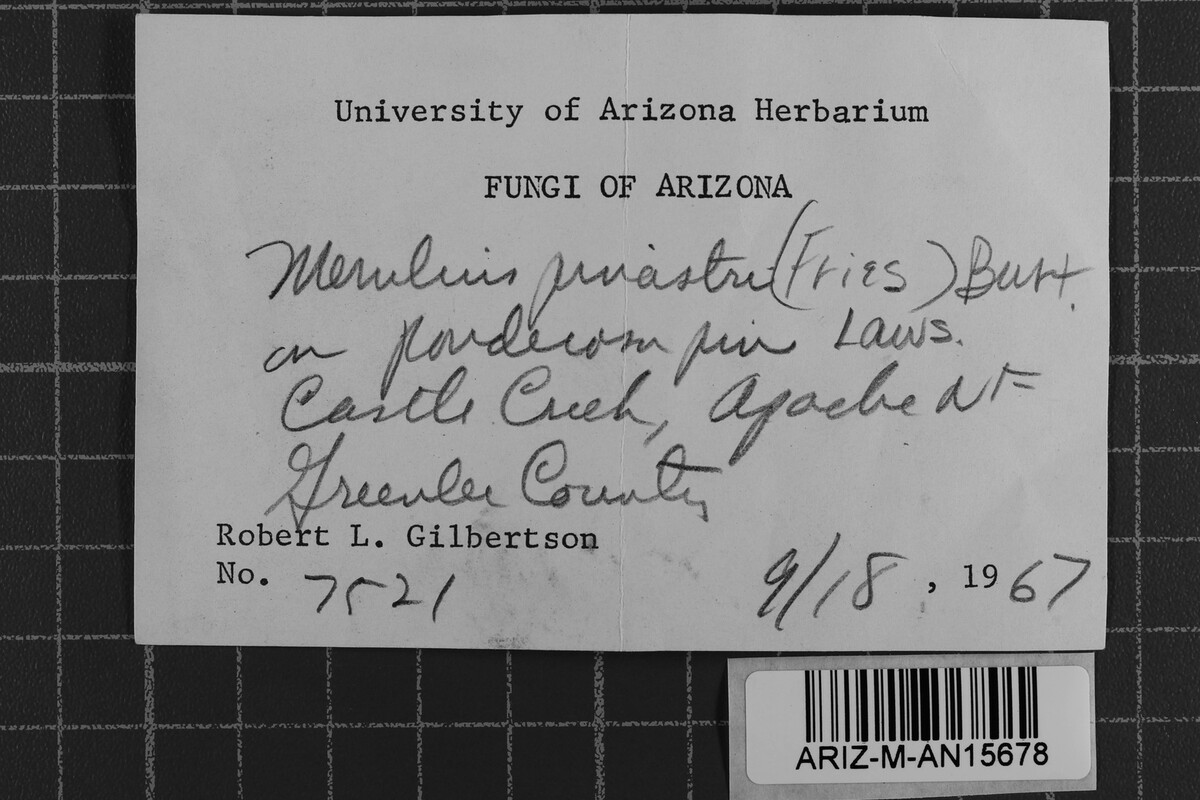 University of Arizona Herbarium
FUNGI OF ARIZONA
Merulius pinastri (Fries) Burt.
on ponderosa pine Laws.
Castle Creek, Apache NF
Greenlee County
Robert L. Gilbertson
No. 7521
9/18, 1967
ARIZ-M-AN15678